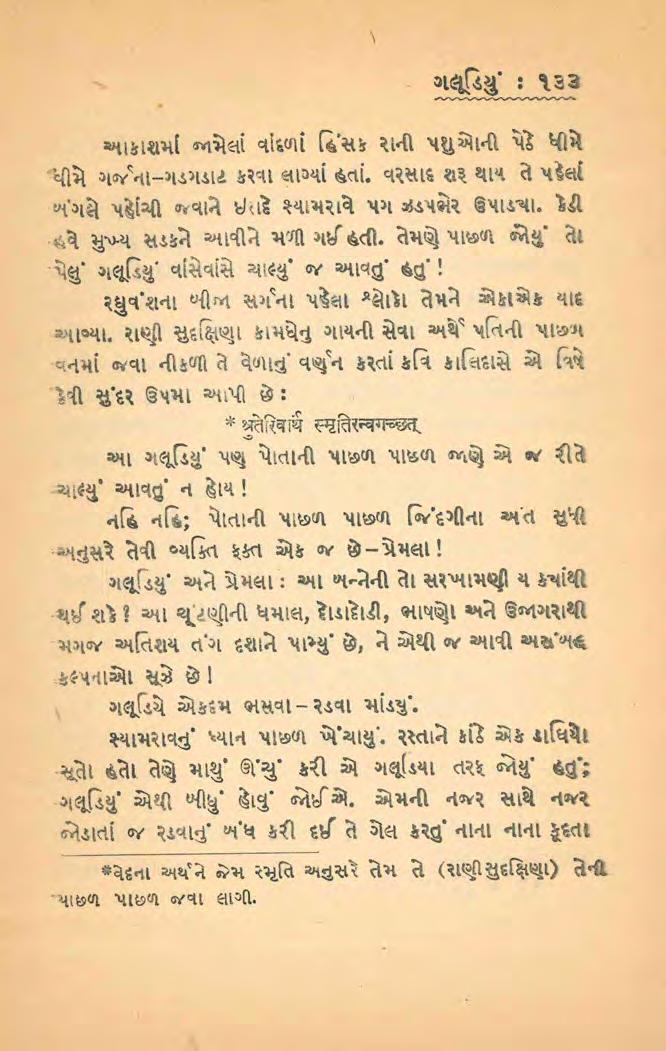 ગલૂડિયું : ૧૩૩
આકાશમાં જામેલાં વાંદળાં હિંસક રાની પશુઓની પેઠે ધીમે
ધીમે ગર્જના–ગડગડાટ કરવા લાગ્યાં હતાં. વરસાદ શરૂ થાય તે પહેલાં
બંગલે પહોંચી જવાને ઇરાદે શ્યામરાવે પગ ઝડપભેર ઉપાડ્યા. કેડી
હવે મુખ્ય સડકને આવીને મળી ગઈ હતી. તેમણે પાછળ જોયું તો
પેલું ગલૂડિયું વાંસેવાંસે ચાલ્યું જ આવતું હતું!
રઘુવંશના બીજા સર્ગના પહેલા શ્લોકો તેમને એકાએક યાદ
આવ્યા. રાણી સુદક્ષિણા કામધેનુ ગાયની સેવા અર્થે પતિની પાછળ
વનમાં જવા નીકળી તે વેળાનું વર્ણન કરતાં કવિ કાલિદાસે એ વિષે
કેવી સુંદર ઉપમા આપી છે:
* श्रुतेरिवार्थं स्मृतिरन्वगच्छत्
આ ગલૂડિયું પણ પોતાની પાછળ પાછળ જાણે એ જ રીતે
ચાલ્યું આવતું ન હોય!
નહિ નહિ; પોતાની પાછળ પાછળ જિંદગીના અંત સુધી
અનુસરે તેવી વ્યક્તિ ફક્ત એક જ છે–પ્રેમલા!
ગલૂડિયું અને પ્રેમલા: આ બન્નેની તો સરખામણી ય ક્યાંથી
થઈ શકે? આ ચૂંટણીની ધમાલ, દોડાદોડી, ભાષણો અને ઉજાગરાથી
મગજ અતિશય તંગ દશાને પામ્યું છે, ને એથી જ આવી અસંબદ્ધ
કલ્પનાઓ સૂઝે છે!
ગલૂડિયે એકદમ ભસવા–રડવા માંડ્યું.
શ્યામરાવનું ધ્યાન પાછળ ખેંચાયું. રસ્તાને કાંઠે એક ડાઘિયો
સૂતો હતો તેણે માથું ઊંચું કરી એ ગલૂડિયા તરફ જોયું હતું;
ગલૂડિયું એથી બીધું હોવું જોઈએ. એમની નજર સાથે નજર
જોડાતાં જ રડવાનું બંધ કરી દઈ તે ગેલ કરતું નાના નાના કૂદતા
*વેદના અર્થને જેમ સ્મૃતિ અનુસરે તેમ તે (રાણી સુદક્ષિણા) તેની
પાછળ પાછળ જવા લાગી.